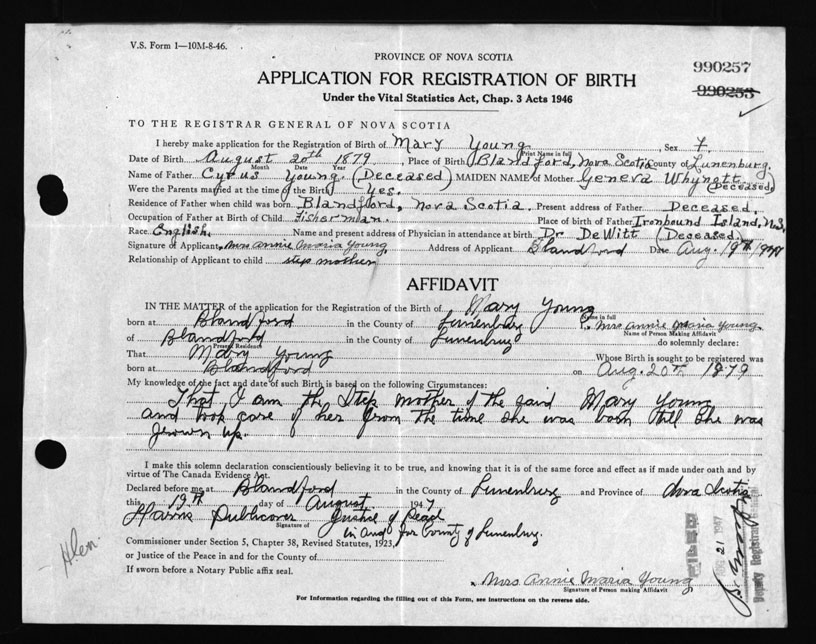 V.S. Form 1—10M-8-46.
PROVINCE OF NOVA SCOTIA
990257
APPLICATION FOR REGISTRATION OF BIRTH
990253
Under the Vital Statistics Act, Chap. 3 Acts 1946
TO THE REGISTRAR GENERAL OF NOVA SCOTIA
I hereby make application for the Registration of Birth of Mary Young, Sex F.
Print Name in full
Date of Birth August 20th 1879, Place of Birth Blandford, Nova Scotia County of Lunenburg.
Month Date Year
Name of Father Cyrus Young. (Deceased) MAIDEN NAME of Mother Geneva Whynott (Deceased)
Were the Parents married at the time of the Birth Yes.
Residence of Father when child was born Blandford, Nova Scotia. Present address of Father Deceased.
Occupation of Father at Birth of Child Fisherman. Place of birth of Father Ironbound Island, N.S.
Race English. Name and present address of Physician in attendance at birth Dr DeWitt (Deceased)
Signature of Applicant Mrs Annie Maria Young Address of Applicant Blandford Date Aug. 19th 1947
Relationship of Applicant to child step mother
AFFIDAVIT
IN THE MATTER of the application for the Registration of the Birth of Mary Young
Name in full
born at Blandford in the County of Lunenburg I, Mrs Annie Maria Young
Name of Person Making Affidavit
of Blandford in the County of Lunenburg do solemnly declare:
Present Residence
That Mary Young Whose Birth is sought to be registered was
born at Blandford on Aug. 20th 1879
My knowledge of the fact and date of such Birth is based on the following Circumstances:
That I am the Step mother of the said Mary Young
and took care of her from the time she was born till she was
grown up.
I make this solemn declaration conscientiously believing it to be true, and knowing that it is of the same force and effect as if made under oath and by
virtue of The Canada Evidence Act.
Declared before me at Blandford in the County of Lunenburg and Province of Nova Scotia
this 19th day of August 1947
Harris Publicover Justice of Peace
Signature of
in and for County of Lunenburg.
Commissioner under Section 5, Chapter 38, Revised Statutes, 1923,
or Justice of the Peace in and for County of
If sworn before a Notary Public affix seal.
Mrs Annie Maria Young
Signature of Person making Affidavit
For Information regarding the filling out of this Form, see instructions on the reverse side.
Hlen.
21 1947
Deputy Registrar